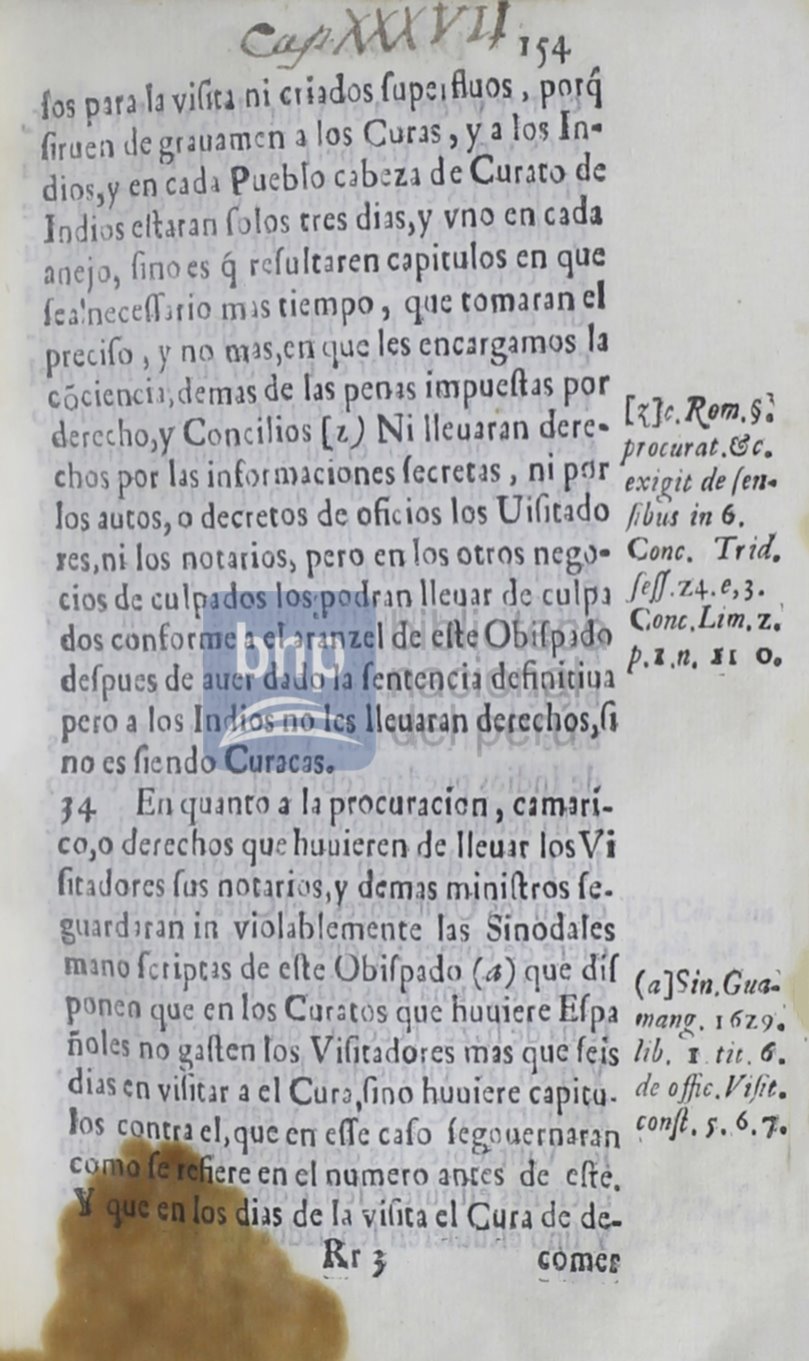 Cap. XXXVII
154
ſos para la viſita ni criados ſuperfluos, porq́
ſiruen de grauamen a los Curas, y a los In-
dios, y en cada Pueblo cabeza de Curato de
Indios eſtaran ſolos tres dias, y vno en cada
anejo, ſino es q́ reſultaren capitulos en que
ſea neceſſario mas tiempo, que tomaran el
preciſo, y no mas, en que les encargamos la
cōciencia, demas de las penas impueſtas por
derecho, y Concilios [z) Ni lleuaran dere-
chos por las informaciones ſecretas, ni por
los autos, o decretos de oficios los Uiſitado
res, ni los notarios, pero en los otros nego-
cios de culpados los podran lleuar de culpa
dos conforme a el aranzel de eſte Obiſpado
deſpues de auer dado la ſentencia definitiua
pero a los Indios no les lleuaran derechos, ſi
no es ſiendo Curacas.
34 En quanto a la procuracion, camari-
co, o derechos que huuieren de lleuar los Vi
ſitadores ſus notarios, y demas miniſtros ſe-
guardaran in violablemente las Sinodales
mano ſcriptas de eſte Obiſpado (a) que diſ
ponen que en los Curatos que huuiere Eſpa
ñoles no gaſten los Viſitadores mas que ſeis
dias en viſitar a el Cura, ſino huuiere capitu-
los contra el, que en eſſe caſo ſegouernaran
como ſe refiere en el numero antes de eſte.
Y que en los dias de la viſita el Cura de de-
Rr 3 comer
[z]c. Rom. §.
procurat. &c.
exigit de ſen-
ſibus in 6.
Conc. Trid.
ſeſſ. 24. e, 3.
Conc. Lim. 2.
p. 1. n. 11 0.
(a] Sin. Gua-
mang. 1629.
lib. 1 tit. 6.
de offic. Viſit.
conſt. 5. 6. 7.
bnp
biblioteca
nacional
del perú